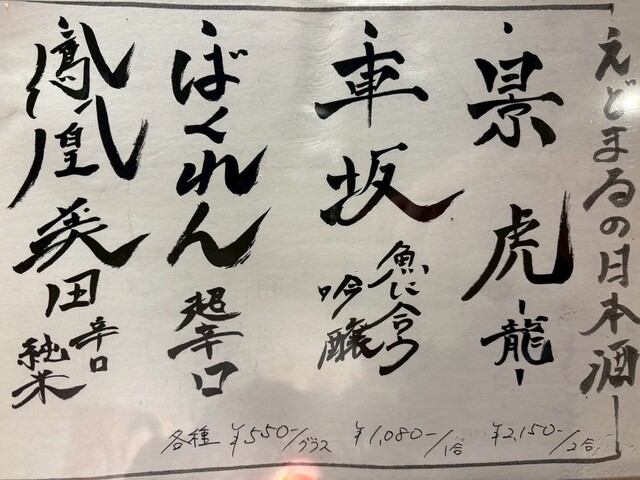 えどまるの日本酒
・景虎 -龍-
・車坂 魚に合う
吟醸
・ばくれん 超辛口
・鳳凰美田 辛口
純米
各種 ¥550-/グラス ¥1,080-/1合 ¥2,150-/2合